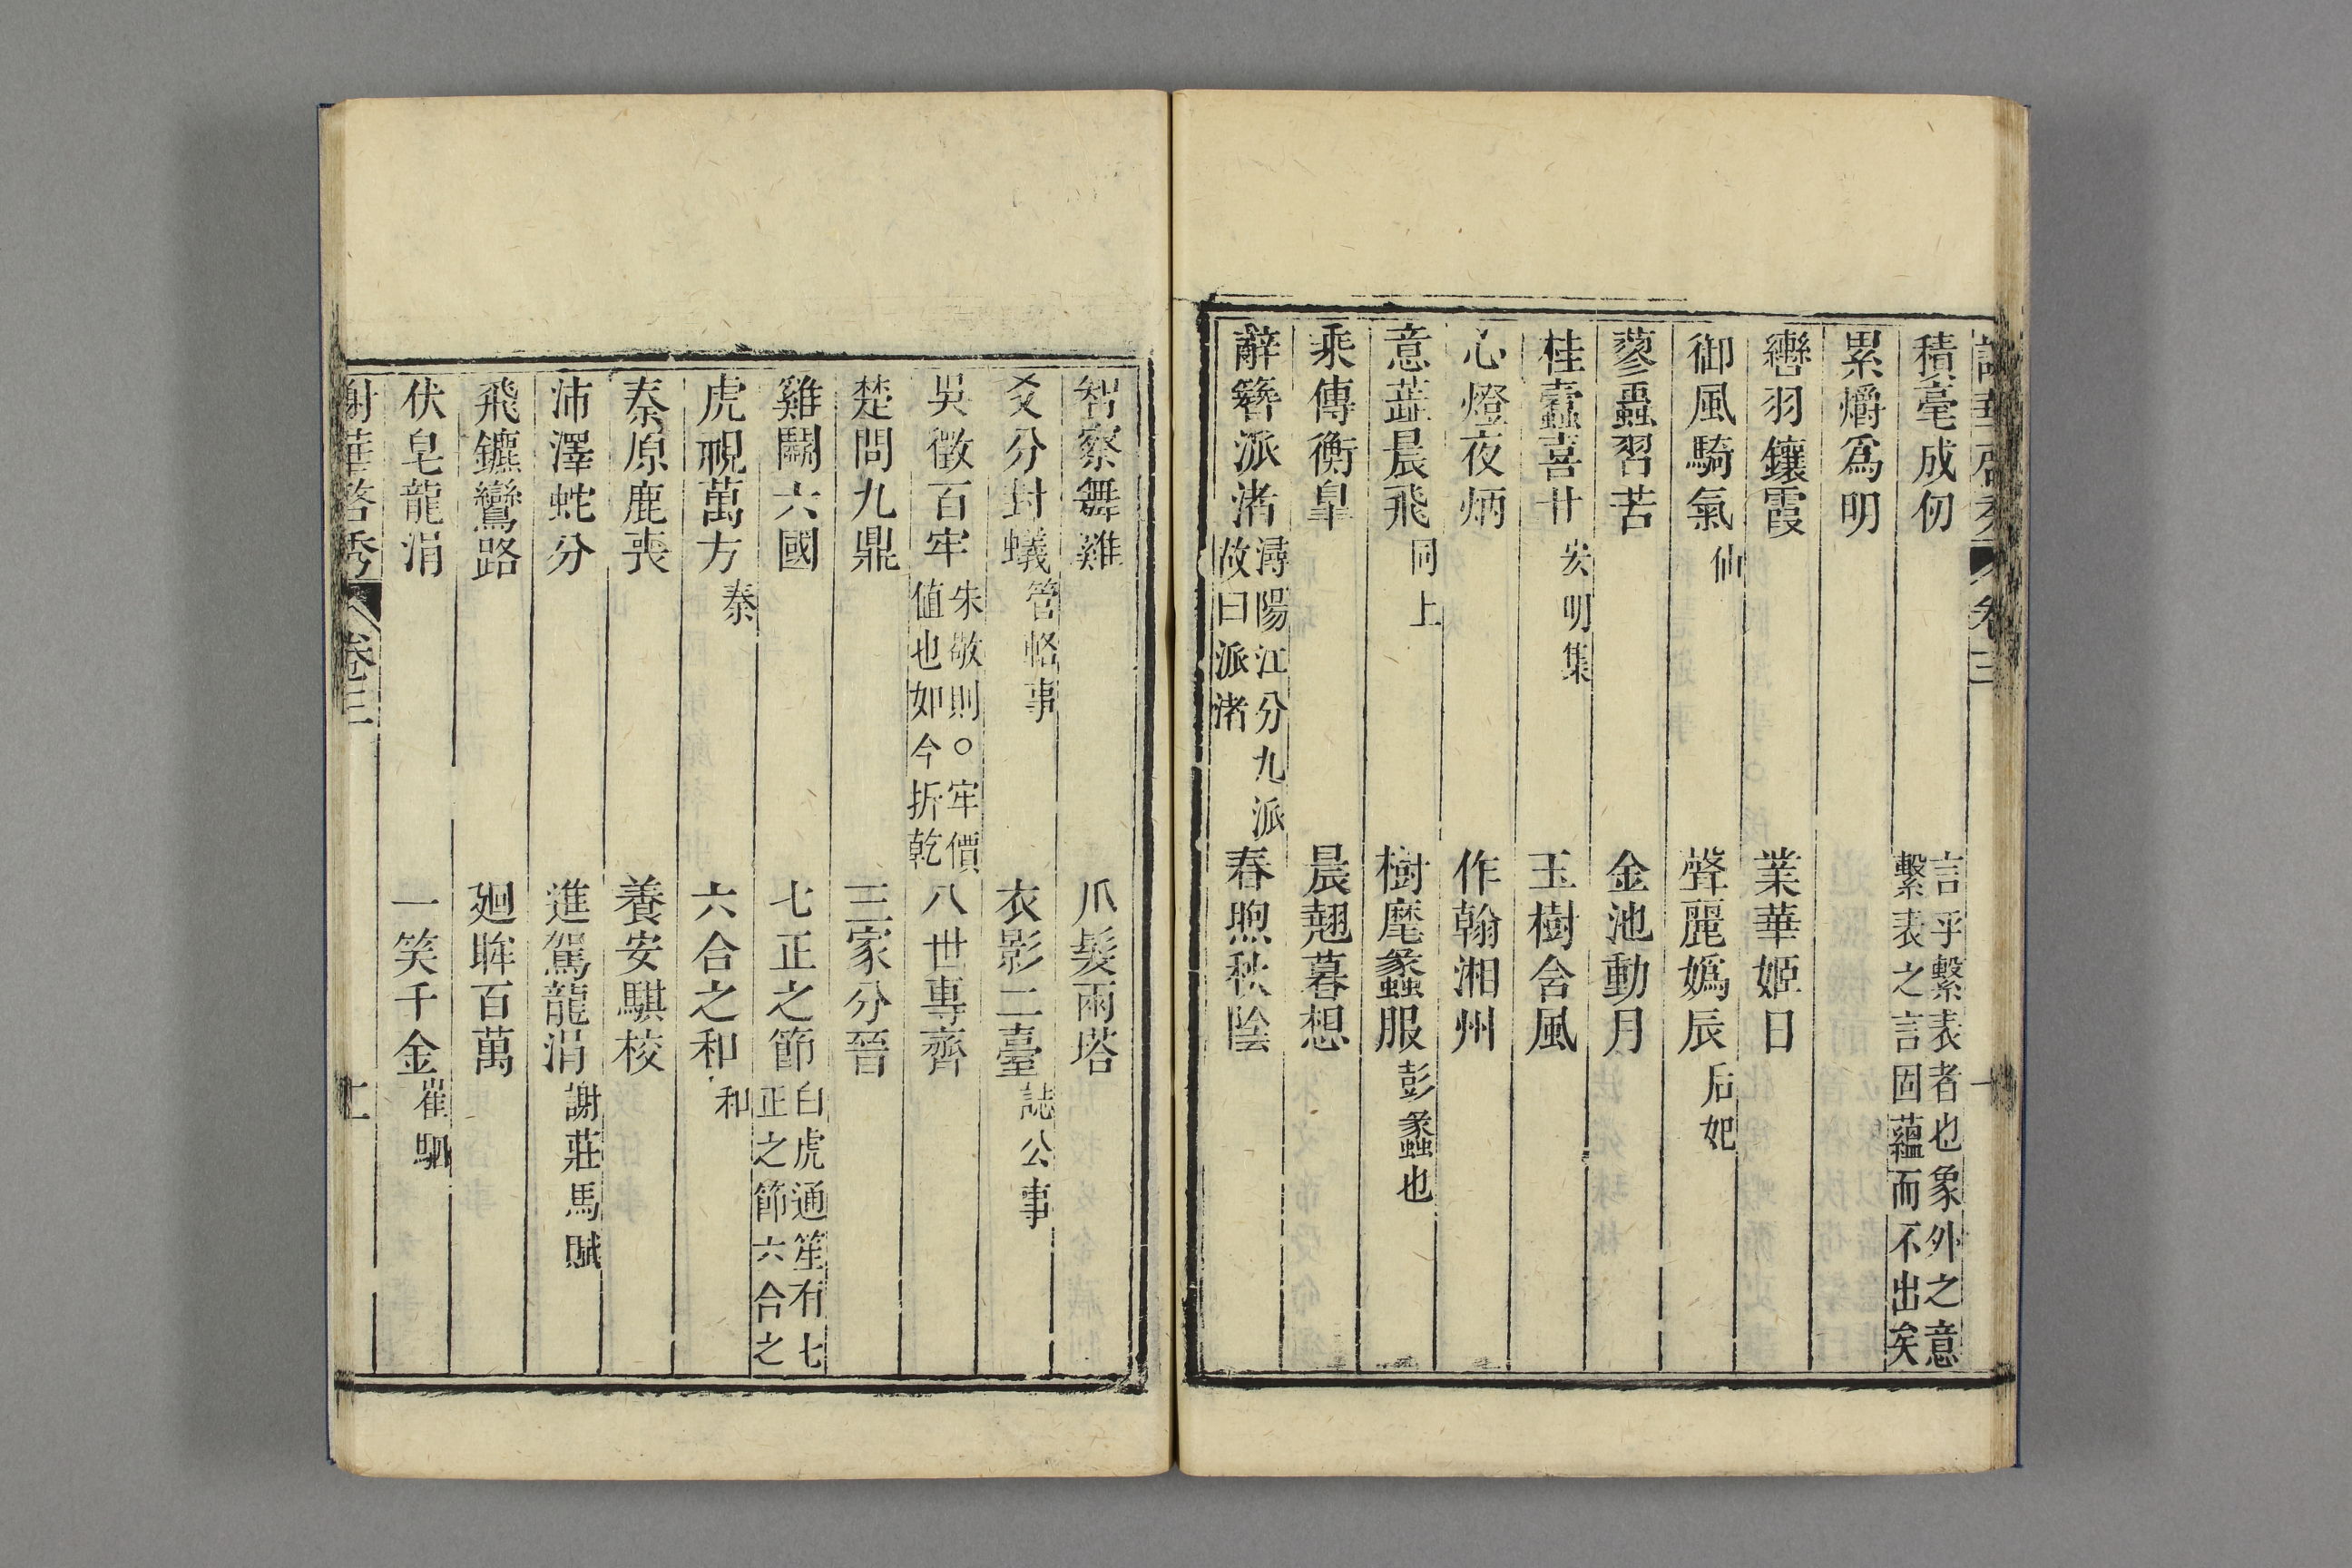 謝華啓秀 卷三 十
積毫成仞 言乎繫表者也象外之意繫表之言固蘊而不出矣
累爝爲明
轡羽鑣霞 業華姬日
御風騎氣 仙 聲麗嬀辰 后妃
蓼蟲習苦 金池動月
桂蠹喜廿 安明集 玉樹含風
心燈夜炳 作翰湘州
意蕋晨飛 同上 樹麾蠡服 彭蠡也
乘傳衡皐 晨翹暮想
辭簪派渚 潯陽江分九派故曰派渚 春煦秋陰
智察舞雞 爪髮兩塔
爻分封蟻 管輅事 衣影二臺 誌公事
吳徵百牢 朱敬則○牢價值也如今折乾 八世專齊
楚問九鼎 三家分晉
雞鬬六國 七正之節 白虎通笙有七正之節六合之
虎視萬方 秦 六合之和 和
秦原鹿喪 養安騏校
沛澤蛇分 進駕龍涓 謝莊馬賦
飛鑣鸞路 廻眸百萬
伏皂龍涓 一笑千金 崔駰
謝華啓秀 卷三